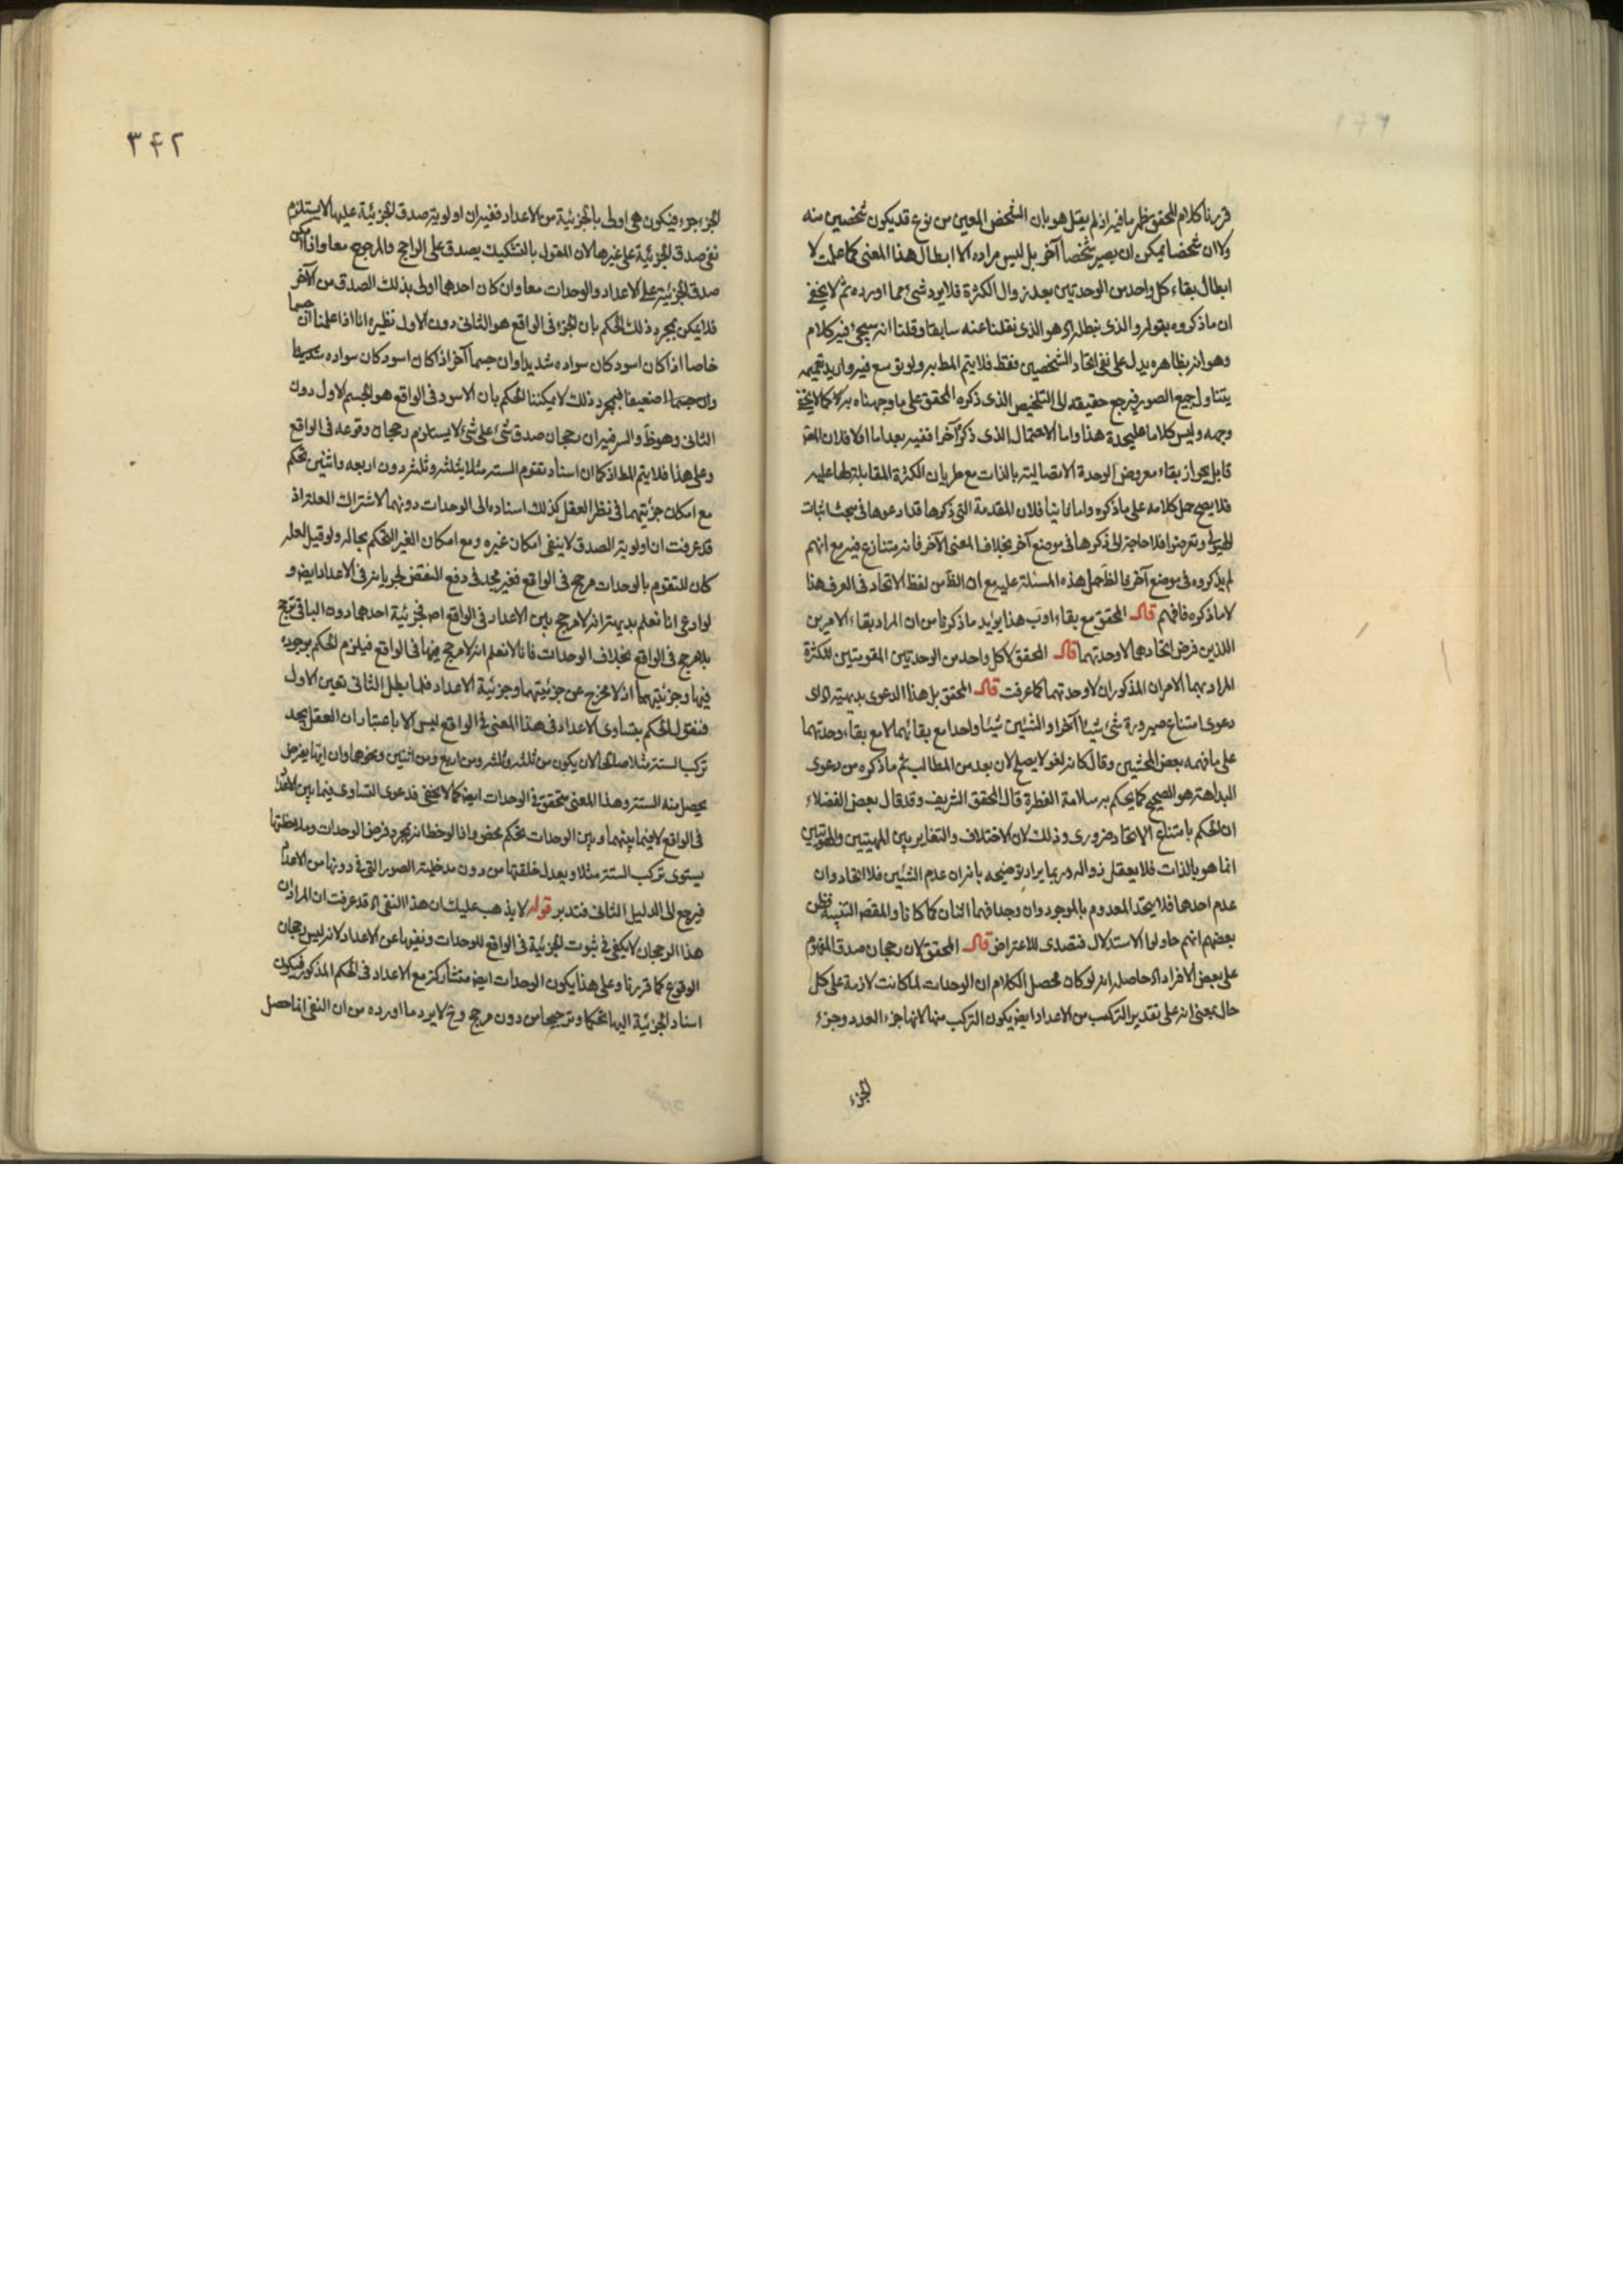 قررنا كلام المحقق ظهر ما فيه اذ لم يقل هو بان الشخص المعين من نوع قد يكون شخصين منه
ولا ان شخصا يمكن ان يصير شخصا آخر بل ليس مراده الا ابطال هذا المعنى كما علمت لا
ابطال بقاء كل واحد من الوحدتين بعد زوال الكثرة فلا يرد شئ مما اورده ثم لا يخفى
ان ما ذكروه بقوله والذى نبطله اه هو الذى نقلنا عنه سابقا وقلنا انه سيجئ فيه كلام
وهو انه بظاهره يدل على نفى اتحاد الشخصين فقط فلا يتم المط به ولو توسع فيه واريد تعميمه
يتناول جميع الصور فيرجع حقيقة الى التلخيص الذى ذكره المحقق على ما وجهنا به كلامه كما لا يخفى
وجهه وليس كلاما عليحدة هذا واما الاحتمال الذى ذكر آخرا ففيه بعد اما اولا فلان المعترض
قايل بجواز بقاء معروض الوحدة الاتصالية بالذات مع طريان الكثرة المقابلة لها عليه
فلا يصح حمل كلامه على ما ذكروه واما ثانيا فلان المقدمة التى ذكرها قد ادعوها فى مبحث اثبات
الهيولى وتعرضوا فلا حاجة الى ذكرها فى موضع آخر بخلاف المعنى الآخر فانه متنازع فيه مع انهم
لم يذكروه فى موضع آخر فالظ حمل هذه المسئلة عليه مع ان الظ من لفظ الاتحاد فى العرف هذا
لا ما ذكره فافهم قال المحقق مع بقاء اوب هذا يؤيد ما ذكرنا من ان المراد بقاء الامرين
اللذين فرض اتحادهما لا وحدتهما قال المحقق لا كل واحد من الوحدتين المقومتين للكثرة
المراد بهما الامران المذكوران لا وحدتهما كما عرفت قال المحقق بل هذا الدعوى بديهية اه اى
دعوى امتناع صيرورة شئ شيئا آخر او الشئين شيئا واحدا مع بقائهما لا مع بقاء وحدتهما
على ما فهمه بعض المحشين وقال كانه لغو لا يصلح لان يعد من المطالب ثم ما ذكره من دعوى
البداهة هو الصحيح كما يحكم به سلامة الفطرة قال المحقق الشريف وقد قال بعض الفضلاء
ان الحكم بامتناع الاتحاد ضرورى وذلك لان الاختلاف والتغاير بين المهيتين والهويتين
انما هو بالذات فلا يعقل زواله وربما يراد توضيحه بانه ان عدم الشئين فلا اتحاد وان
عدم احدهما فلا يتحد المعدوم بالموجود وان وجدا فهما اثنان كما كانا والمقصد التنبيه فظن
بعضهم انهم حاولوا الاستدلال فتصدى للاعتراض قال المحقق لان رجحان صدق المفهوم
على بعض الافراد اه حاصله انه لو كان محصل الكلام ان الوحدات لما كانت لازمة على كل
حال بمعنى انه على تقدير التركب من الاعداد ايض يكون التركب منها لانها جزء العدد وجزء
الجزء
٣٤٢
الجزء جزء فيكون هى اولى بالجزئية من الاعداد ففيه ان اولوية صدق الجزئية عليها لا يستلزم
نفى صدق الجزئية على غيرها لان المقول بالتشكيك يصدق على الراجح والمرجوح معا واذا امكن
صدق الجزئية على الاعداد والوحدات معا وان كان احدهما اولى بذلك الصدق من الآخر
فلا يمكن بمجرد ذلك الحكم بان الجزء فى الواقع هو الثانى دون الاول نظيره انا اذا علمنا ان جسما
خاصا اذا كان اسود كان سواده شديدا وان جسما آخر اذا كان اسود كان سواده
ضعيفا فبمجرد ذلك لا يمكننا الحكم بان الاسود فى الواقع هو الجسم الاول دون
الثانى وهو ظ والسر فيه ان رجحان صدق شئ على شئ لا يستلزم رجحان وقوعه فى الواقع
وعلى هذا فلا يتم المط اذ كما ان اسناد تقوم الستة مثلا بثلثة وثلثة دون اربعه واثنين تحكم
مع امكان جزئيتهما فى نظر العقل كذلك اسناده الى الوحدات دونهما لاشتراك العلة اذ
قد عرفت ان اولوية الصدق لا ينفى امكان غيره ومع امكان الغير التحكم بحاله ولو قيل لعله
كان للتقوم بالوحدات مرجح فى الواقع فغير مجد فى دفع النقض لجريانه فى الاعداد ايض و
لو ادعى انا نعلم بديهة انه لا مرجح بين الاعداد فى الواقع اصلا فجزئية احدهما دون الباقى ترجح
بلا مرجح فى الواقع بخلاف الوحدات فانا لا نعلم انه لا مرجح منها فى الواقع فيلزم الحكم بوجود
فيها وجزئيتهما اذ لا مخرج عن جزئيتهما وجزئية الاعداد فلما بطل الثانى تعين الاول
فنقول الحكم بتساوى الاعداد فى هذا المعنى فى الواقع ليس الا باعتبار ان العقل يجد
تركب الستة مثلا صالحا لان يكون من ثلثة وثلثة ومن اربع ومن اثنين ونحوها وان ايها يفرض
يحصل منه الستة وهذا المعنى متحقق فى الوحدات ايض كما لا يخفى فدعوى التساوى فيما بين الاعداد
فى الواقع لا فيما بينهما وبين الوحدات تحكم محض واذا لوحظ انه بمجرد فرض الوحدات وملاحظتها
يستوى تركب الستة مثلا من دون مدخلية الصور التى فى دونها من الاعداد
فيرجع الى الدليل الثانى فتدبر قوله لا يذهب عليك ان هذا النفى اه قد عرفت ان المراد ان
هذا الرجحان لا يكفى فى ثبوت الجزئية فى الواقع للوحدات ونفيها عن الاعداد لانه ليس رجحان
الوقوع كما قررنا وعلى هذا يكون الوحدات ايض متشاركة مع الاعداد فى الحكم المذكور فيكون
اسناد الجزئية اليها تحكما وترجيحا من دون مرجح وح لا يرد ما اورده من ان النفى انما حصل